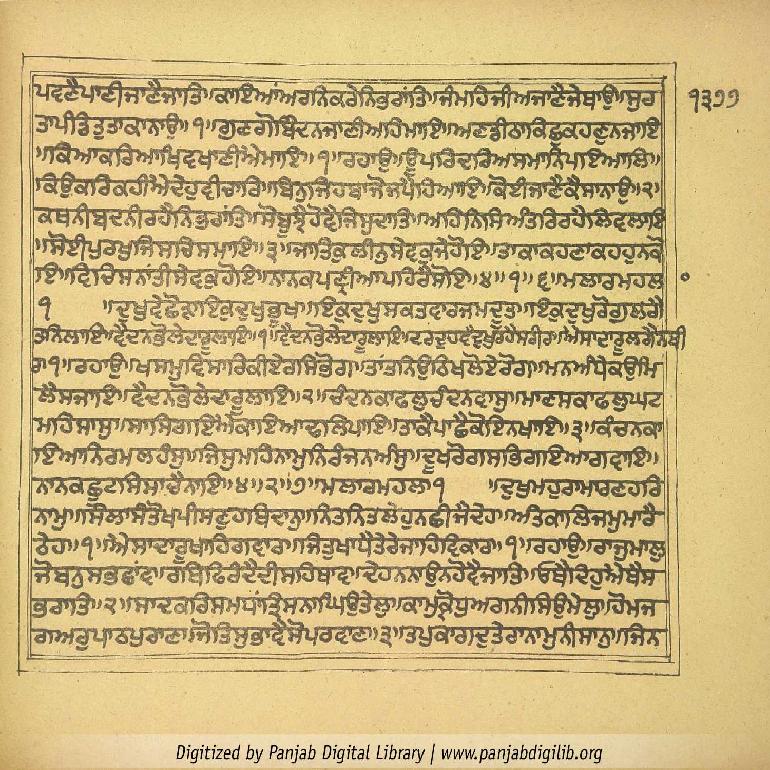 ਪਵਣੈਪਾਣੀਜਾਣੈਜਾਤਿ॥ਕਾਇਆਂਅਗਨਿਕਰੇਨਿਭਰਾਂਤਿ॥ਜੰਮਹਿਜੀਅਜਾਣੈਜੇਥਾਉ॥ਸੁਰ
ਤਾਪੰਡਿਤੁਤਾਕਾਨਾਉ॥੧॥ਗੁਣਗੋਬਿੰਦਨਜਾਣੀਅਹਿਮਾਇ॥ਅਣਡੀਠਾਕਿਛੁਕਹਣੁਨਜਾਇ
॥ਕਿਆਕਰਿਆਖਿਵਖਾਣੀਐਮਾਇ॥੧॥ਰਹਾਉ॥ਊਪਰਿਦਰਿਅਸਮਾਨਿਪਇਆਲਿ॥
ਕਿਉਕਰਿਕਹੀਐਦੇਹੁਵੀਚਾਰਿ॥ਬਿਨੁਜਿਹਬਾਜੋਜਪੈਹਿਆਇ॥ਕੋਈਜਾਣੈਕੈਸਾਨਾਉ॥੨॥
ਕਥਨੀਬਦਨੀਰਹੈਨਿਭਰਾਂਤਿ॥ਸੋਬੂਝੈਹੋਵੈਜਿਸੁਦਾਤਿ॥ਅਹਿਨਿਸਿਅੰਤਰਿਰਹੈਲਿਵਲਾਇ
॥ਸੋਈਪੁਰਖੁਜਿਸਚਿਸਮਾਇ॥੩॥ਜਾਤਿਕੁਲੀਨੁਸੇਵਕੁਜੇਹੋਇ॥ਤਾਕਾਕਹਣਾਕਹਹੁਨਕੋ
ਇ॥ਵਿਚਿਸਨਾਤੀਸੇਵਕੁਹੋਇ॥ਨਾਨਕਪਣ੍ਹੀਆਪਹਿਰੈਸੋਇ॥੪॥੧॥੬॥ਮਲਾਰਮਹਲ
੧ ॥ਦੁਖੁਵੇਛੋੜਾਇਕੁਦੁਖੁਭੂਖ॥ਇਕੁਦੁਖੁਸਕਤਵਾਰਜਮਦੂਤ॥ਇਕੁਦੁਖੁਰੋਗੁਲਗੈ
ਤਨਿਲਾਇ॥ਵੈਦਨਭੋਲੇਦਾਰੂਲਾਇ॥੧॥ਵੈਦਨਭੋਲੇਦਾਰੂਲਾਇ॥ਦਰਦੁਹਵੈਦੁਖੁਰਹੈਸਰੀਰ॥ਐਸਾਦਾਰੂਲਗੈਨਬੀ
ਰ॥੧॥ਰਹਾਉ॥ਖਸਮੁਵਿਸਾਰਿਕੀਏਰਸਭੋਗ॥ਤਾਂਤਨਿਉਠਿਖਲੋਏਰੋਗ॥ਮਨਅੰਧੇਕਉਮਿ
ਲੈਸਜਾਇ॥ਵੈਦਨਭੋਲੇਦਾਰੂਲਾਇ॥੨॥ਚੰਦਨਕਾਫਲੁਚੰਦਨਵਾਸੁ॥ਮਾਣਸਕਾਫਲੁਘਟ
ਮਹਿਸਾਸੁ॥ਸਾਸਿਗਇਐਕਾਇਆਢਲਿਪਾਇ॥ਤਾਕੈਪਾਛੈਕੋਇਨਖਾਇ॥੩॥ਕੰਚਨਕਾ
ਇਆਨਿਰਮਲਹੰਸੁ॥ਜਿਸੁਮਹਿਨਾਮੁਨਿਰੰਜਨਅੰਸੁ॥ਦੂਖਰੋਗਸਭਿਗਇਆਗਵਾਇ॥
ਨਾਨਕਛੂਟਸਿਸਾਚੈਨਾਇ॥੪॥੨॥੭॥ਮਲਾਰਮਹਲਾ੧ ॥ਦੁਖੁਮਹੁਰਾਮਾਰਣਹਰਿ
ਨਾਮੁ॥ਸਿਲਾਸੰਤੋਖਪੀਸਣੁਹਥਿਦਾਨੁ॥ਨਿਤਨਿਤਲੇਹੁਨਛੀਜੈਦੇਹ॥ਅੰਤਕਾਲਿਜਮੁਮਾਰੈ
ਠੇਹ॥੧॥ਐਸਾਦਾਰੂਖਾਹਿਗਵਾਰ॥ਜਿਤੁਖਾਧੈਤੇਰੇਜਾਹਿਵਿਕਾਰ॥੧॥ਰਹਾਉ॥ਰਾਜੁਮਾਲੁ
ਜੋਬਨੁਸਭਛਾਂਵ॥ਰਥਿਫਿਰੰਦੈਦੀਸਹਿਥਾਵ॥ਦੇਹਨਨਾਉਨਹੋਵੈਜਾਤਿ॥ਓਥੈਦਿਹੁਐਥੈਸ
ਭਰਾਤਿ॥੨॥ਸਾਦਕਰਿਸਮਧਾਂਤ੍ਰਿਸਨਾਘਿਉਤੇਲੁ॥ਕਾਮੁਕ੍ਰੋਧੁਅਗਨੀਸਿਉਮੇਲੁ॥ਹੋਮਜ
ਗਅਰੁਪਾਠਪੁਰਾਣ॥ਜੋਤਿਸੁਭਾਵੈਸੋਪਰਵਾਣ॥੩॥ਤਪੁਕਾਗਦੁਤੇਰਾਨਾਮੁਨੀਸਾਨੁ॥ਜਿਨ
੧੩੭੭
Digitized by Panjab Digital Library | www.panjabdigilib.org